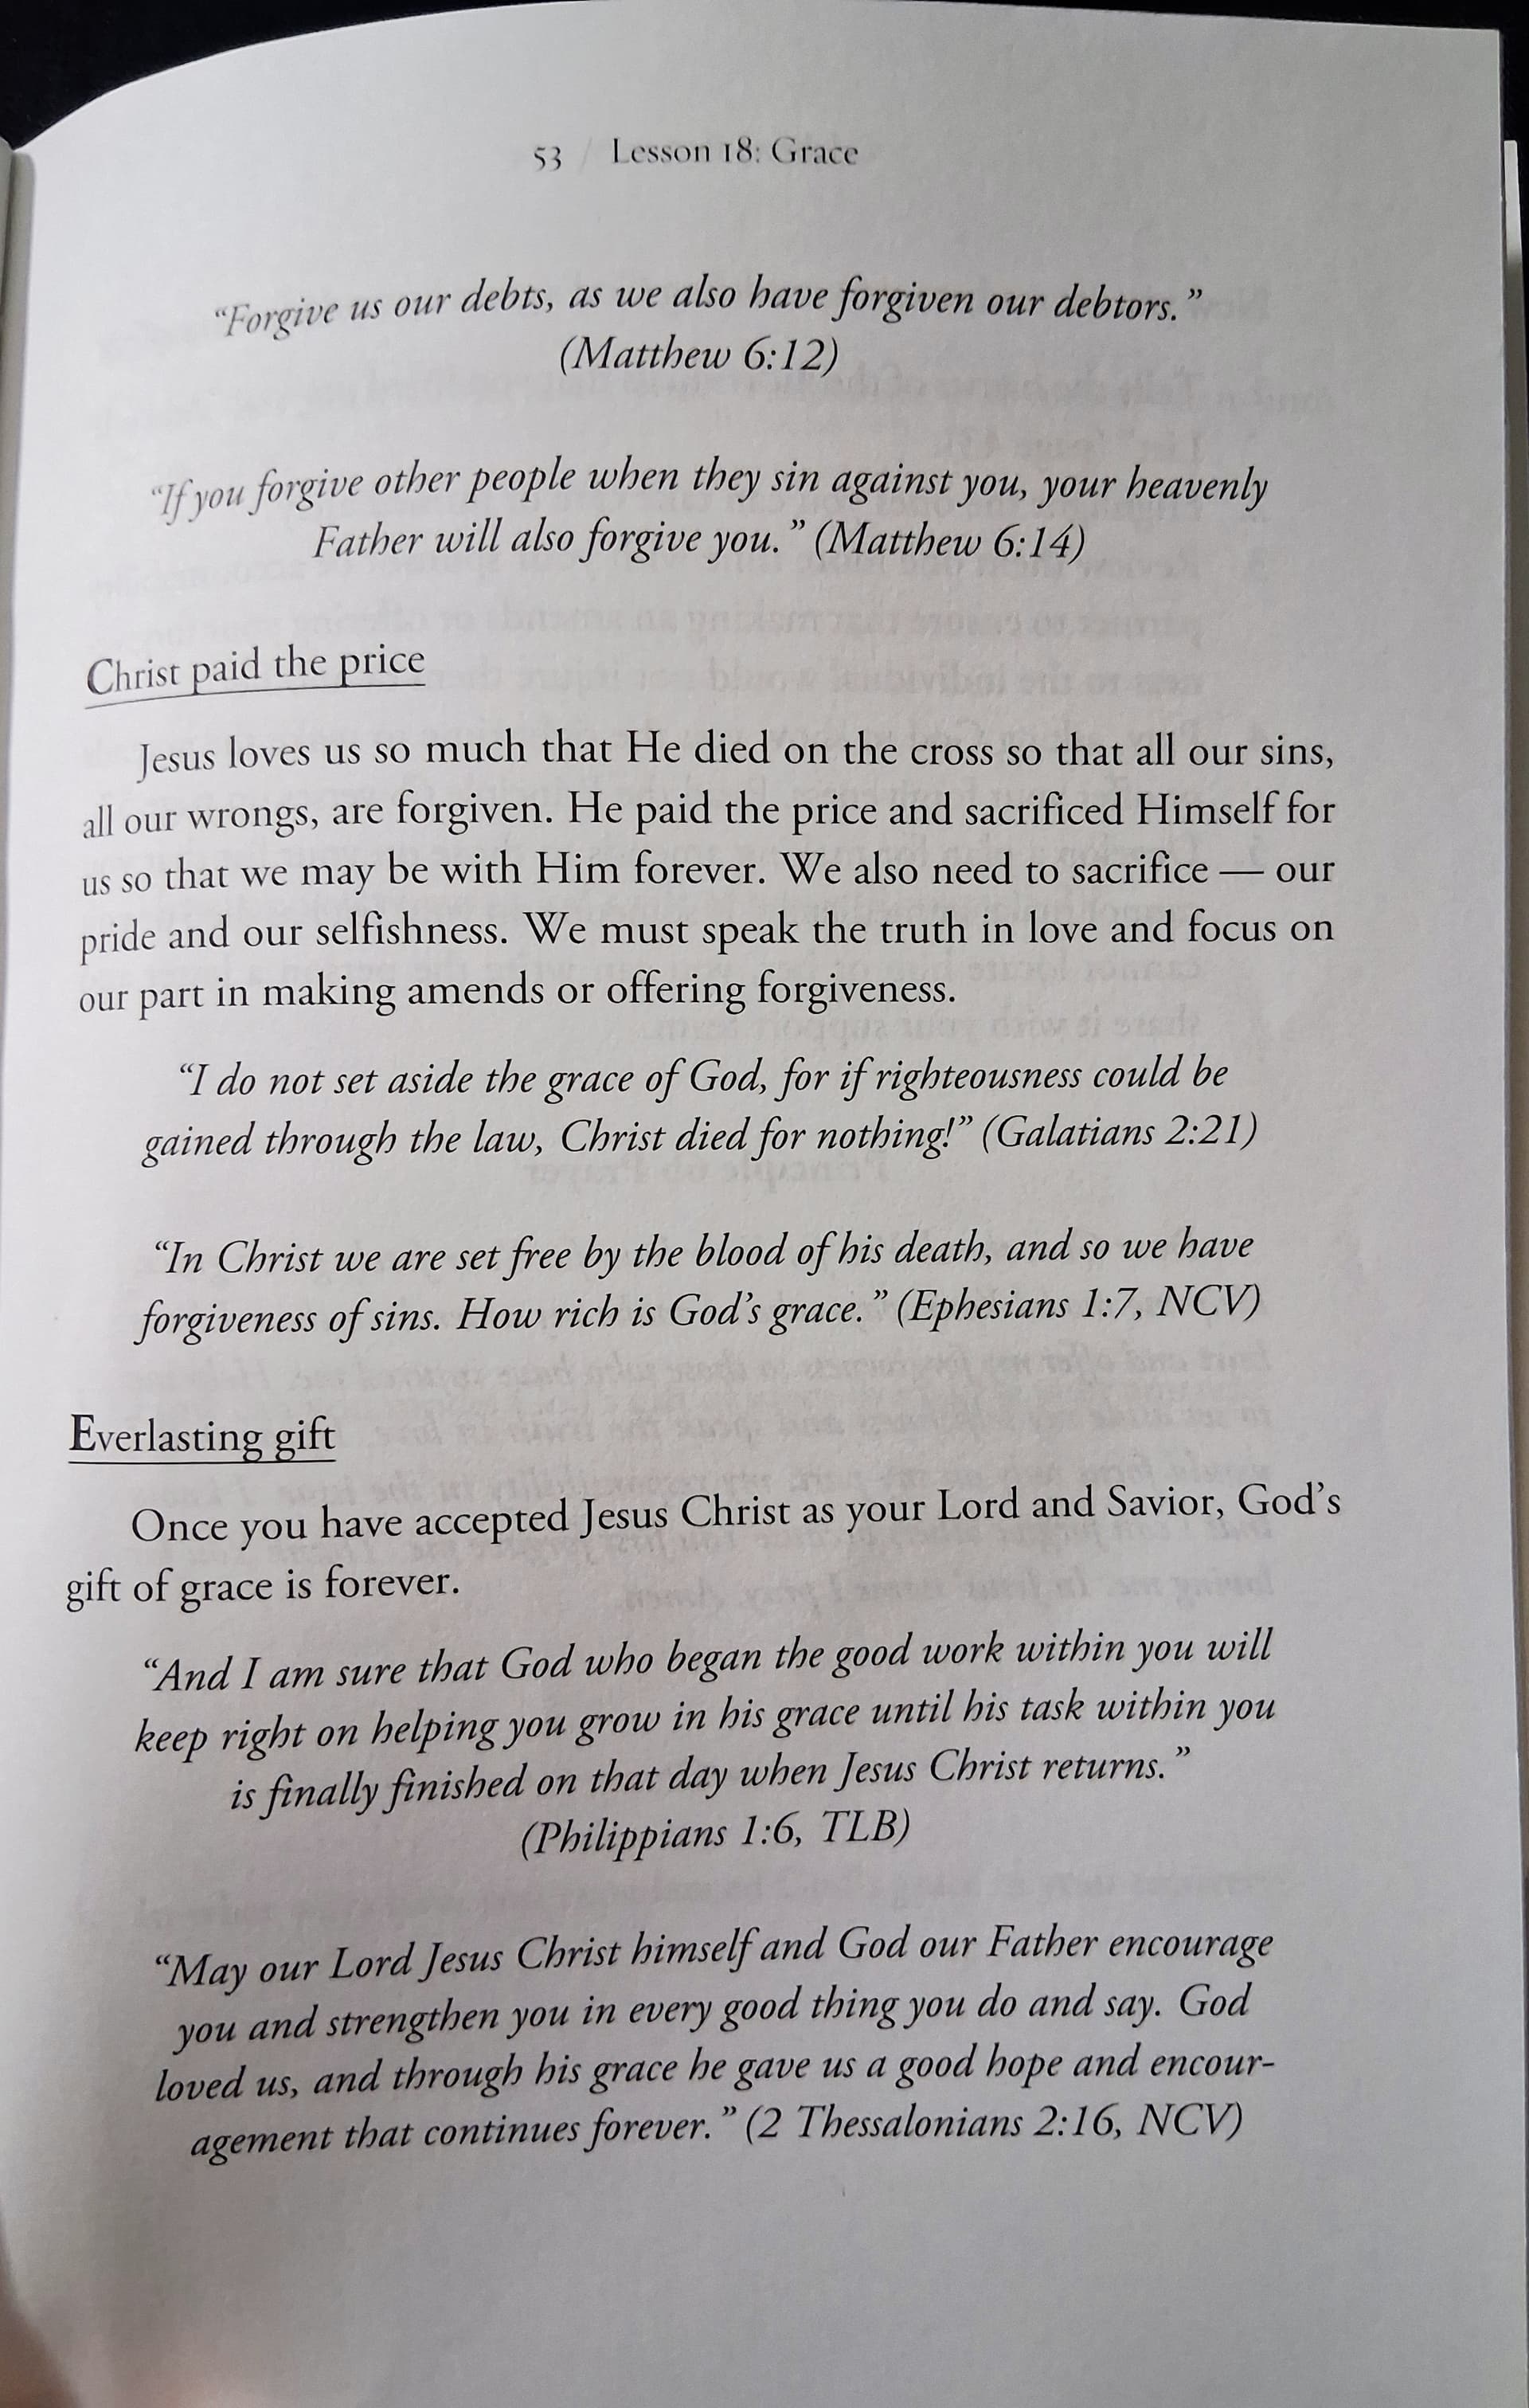 53 / Lesson 18: Grace
“Forgive us our debts, as we also have forgiven our debtors.”
(Matthew 6:12)
“If you forgive other people when they sin against you, your heavenly
Father will also forgive you.” (Matthew 6:14)
Christ paid the price
Jesus loves us so much that He died on the cross so that all our sins,
all our wrongs, are forgiven. He paid the price and sacrificed Himself for
us so that we may be with Him forever. We also need to sacrifice — our
pride and our selfishness. We must speak the truth in love and focus on
our part in making amends or offering forgiveness.
“I do not set aside the grace of God, for if righteousness could be
gained through the law, Christ died for nothing!” (Galatians 2:21)
“In Christ we are set free by the blood of his death, and so we have
forgiveness of sins. How rich is God’s grace.” (Ephesians 1:7, NCV)
Everlasting gift
Once you have accepted Jesus Christ as your Lord and Savior, God’s
gift of grace is forever.
“And I am sure that God who began the good work within you will
keep right on helping you grow in his grace until his task within you
is finally finished on that day when Jesus Christ returns.”
(Philippians 1:6, TLB)
“May our Lord Jesus Christ himself and God our Father encourage
you and strengthen you in every good thing you do and say. God
loved us, and through his grace he gave us a good hope and encour-
agement that continues forever.” (2 Thessalonians 2:16, NCV)